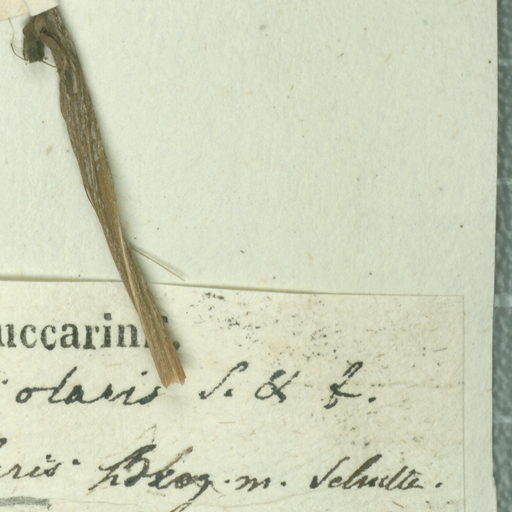 uccarini.
olaris S. & Z.
ris
m. Schulte.